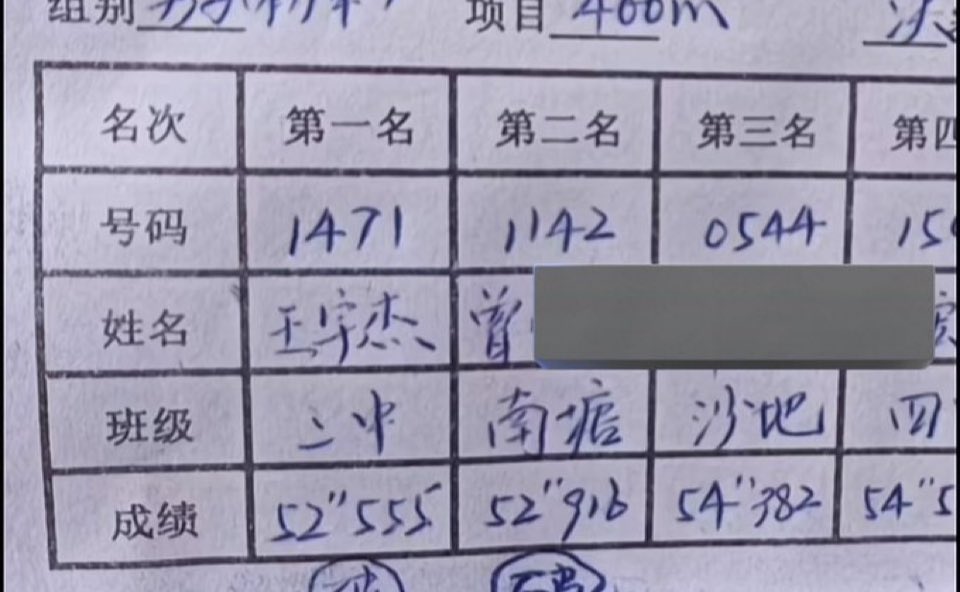 组别 男子初中 项目 400m 决
名次 第一名 第二名 第三名 第四
号码 1471 1142 0544 15
姓名 王宇杰 曾
班级 二中 南塘 沙地 四
成绩 52"555 52"916 54"382 54"5